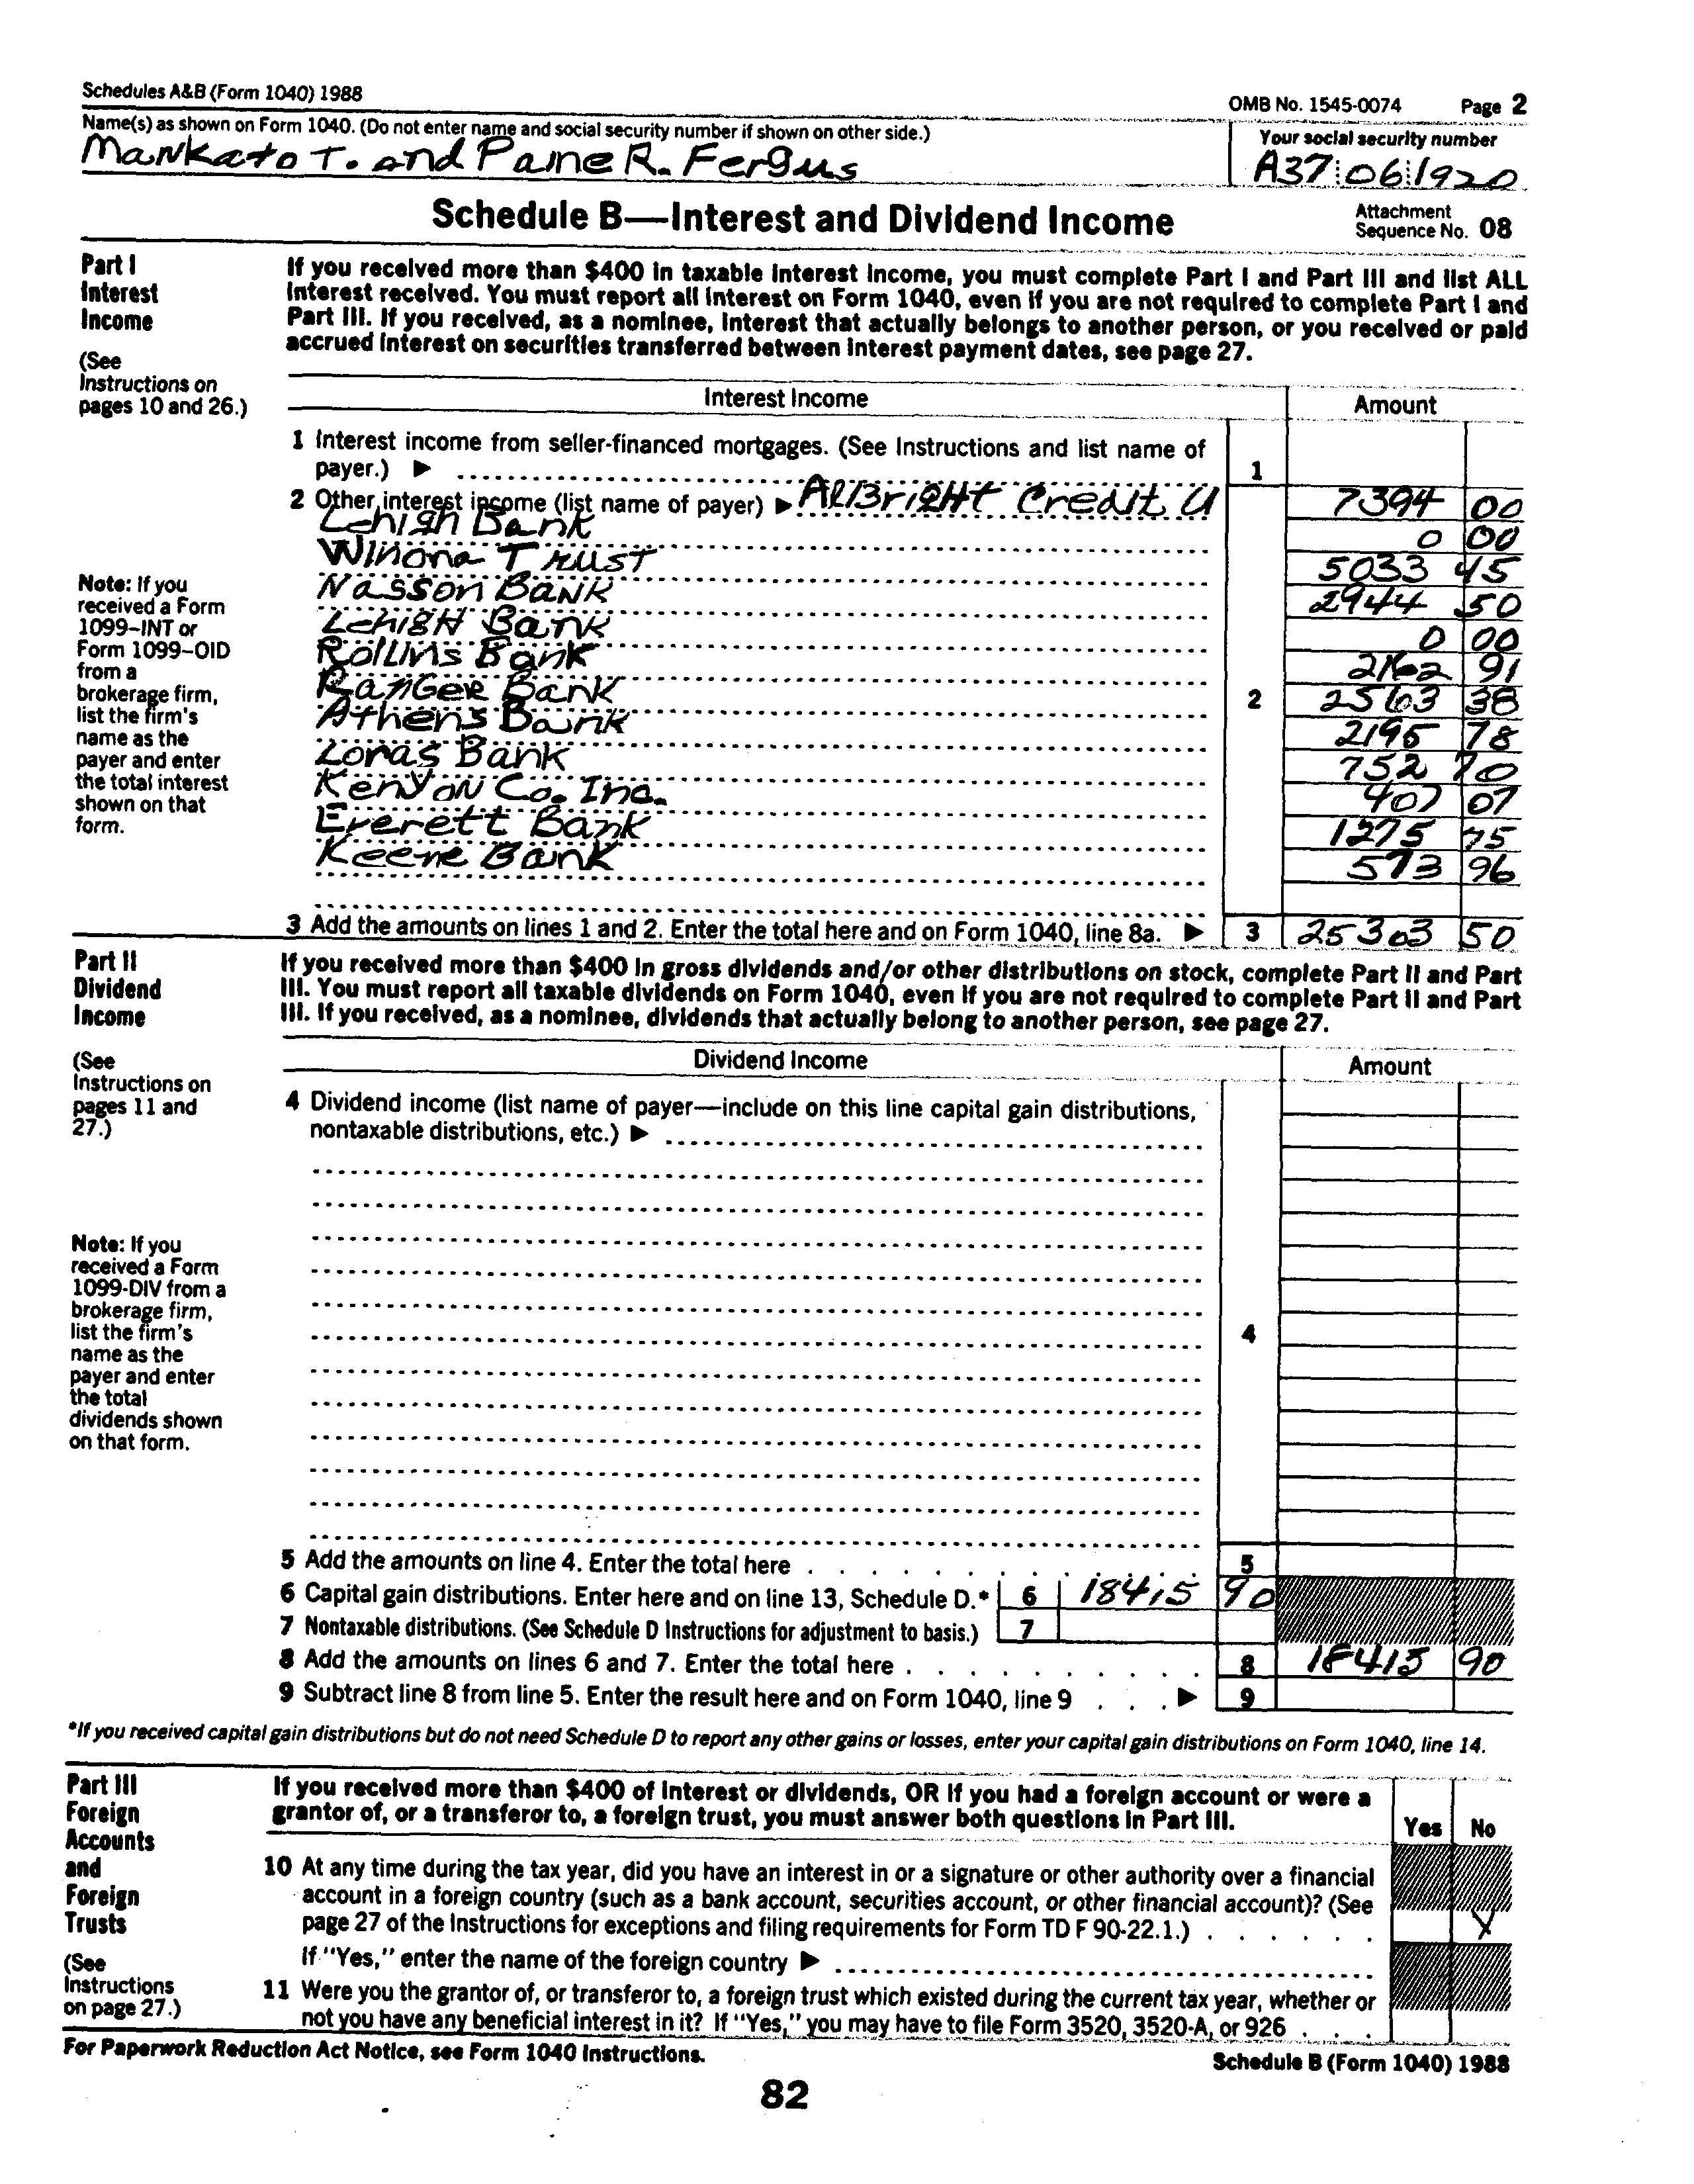 Schedules A&B (Form 1040) 1988
OMB No. 1545-0074 Page 2
Name(s) as shown on Form 1040. (Do not enter name and social security number if shown on other side.)
Your social security number
Mankato T. and Paine R. Fergus
A37 06 1920
Schedule B—Interest and Dividend Income
Attachment
Sequence No. 08
Part I
Interest
Income
(See
Instructions on
pages 10 and 26.)
If you received more than $400 in taxable interest income, you must complete Part I and Part III and list ALL
interest received. You must report all interest on Form 1040, even if you are not required to complete Part I and
Part III. If you received, as a nominee, interest that actually belongs to another person, or you received or paid
accrued interest on securities transferred between interest payment dates, see page 27.
Interest Income Amount
1 Interest income from seller-financed mortgages. (See Instructions and list name of
payer.) ▶ 1
2 Other interest income (list name of payer) ▶ AlBrigHt Credit U 7394 00
Lehigh Bank 0 00
Winona Trust 5033 45
Nasson Bank 2944 50
Lehigh Bank 0 00
Rollins Bank 2162 91
Ranger Bank 2 2563 38
Athens Bank 2195 78
Loras Bank 752 70
Kenyon Co. Inc. 407 07
Everett Bank 1275 75
Keene Bank 573 96
Note: If you
received a Form
1099–INT or
Form 1099–OID
from a
brokerage firm,
list the firm's
name as the
payer and enter
the total interest
shown on that
form.
3 Add the amounts on lines 1 and 2. Enter the total here and on Form 1040, line 8a. ▶ 3 25303 50
Part II
Dividend
Income
(See
Instructions on
pages 11 and
27.)
If you received more than $400 in gross dividends and/or other distributions on stock, complete Part II and Part
III. You must report all taxable dividends on Form 1040, even if you are not required to complete Part II and Part
III. If you received, as a nominee, dividends that actually belong to another person, see page 27.
Dividend Income Amount
4 Dividend income (list name of payer—include on this line capital gain distributions,
nontaxable distributions, etc.) ▶
4
Note: If you
received a Form
1099-DIV from a
brokerage firm,
list the firm's
name as the
payer and enter
the total
dividends shown
on that form.
5 Add the amounts on line 4. Enter the total here . . . . . . . . . . . 5
6 Capital gain distributions. Enter here and on line 13, Schedule D.* 6 18415 90
7 Nontaxable distributions. (See Schedule D Instructions for adjustment to basis.) 7
8 Add the amounts on lines 6 and 7. Enter the total here . . . . . . . . . 8 18415 90
9 Subtract line 8 from line 5. Enter the result here and on Form 1040, line 9 . . . ▶ 9
*If you received capital gain distributions but do not need Schedule D to report any other gains or losses, enter your capital gain distributions on Form 1040, line 14.
Part III
Foreign
Accounts
and
Foreign
Trusts
(See
Instructions
on page 27.)
If you received more than $400 of interest or dividends, OR if you had a foreign account or were a
grantor of, or a transferor to, a foreign trust, you must answer both questions in Part III.
Yes No
10 At any time during the tax year, did you have an interest in or a signature or other authority over a financial
account in a foreign country (such as a bank account, securities account, or other financial account)? (See
page 27 of the Instructions for exceptions and filing requirements for Form TD F 90-22.1.) . . . . . . X
If "Yes," enter the name of the foreign country ▶
11 Were you the grantor of, or transferor to, a foreign trust which existed during the current tax year, whether or
not you have any beneficial interest in it? If "Yes," you may have to file Form 3520, 3520-A, or 926 . . .
For Paperwork Reduction Act Notice, see Form 1040 Instructions.
Schedule B (Form 1040) 1988
82